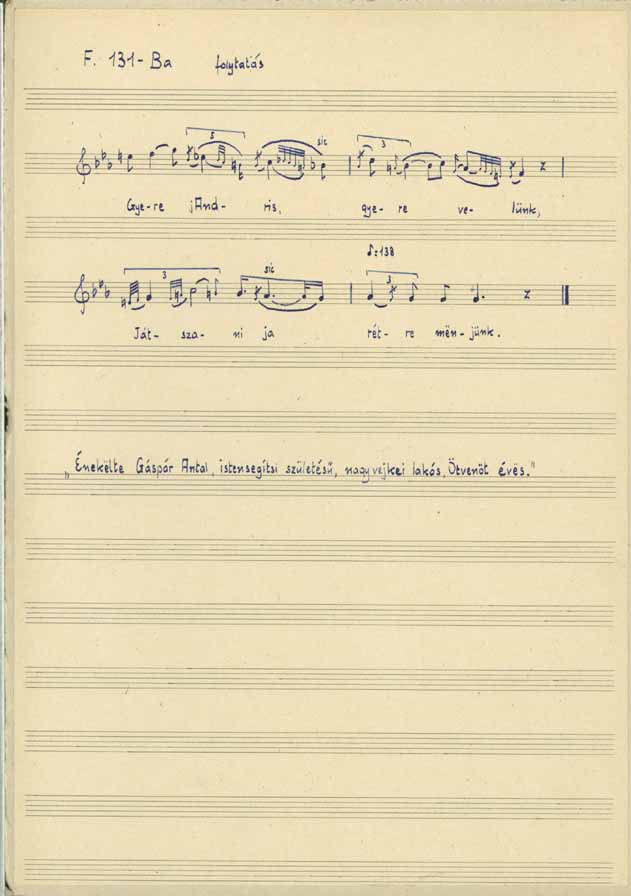 F. 131-Ba folytatás
5 sic 3
Gye-re jAnd-ris, gye-re ve-lünk,
♪=138
3 sic 3
Ját-sza-ni ja rét-re mën-jünk.
„Énekëlte Gáspár Antal, istensegítsi születésű, nagyvejkei lakós, Ötvenöt évës."